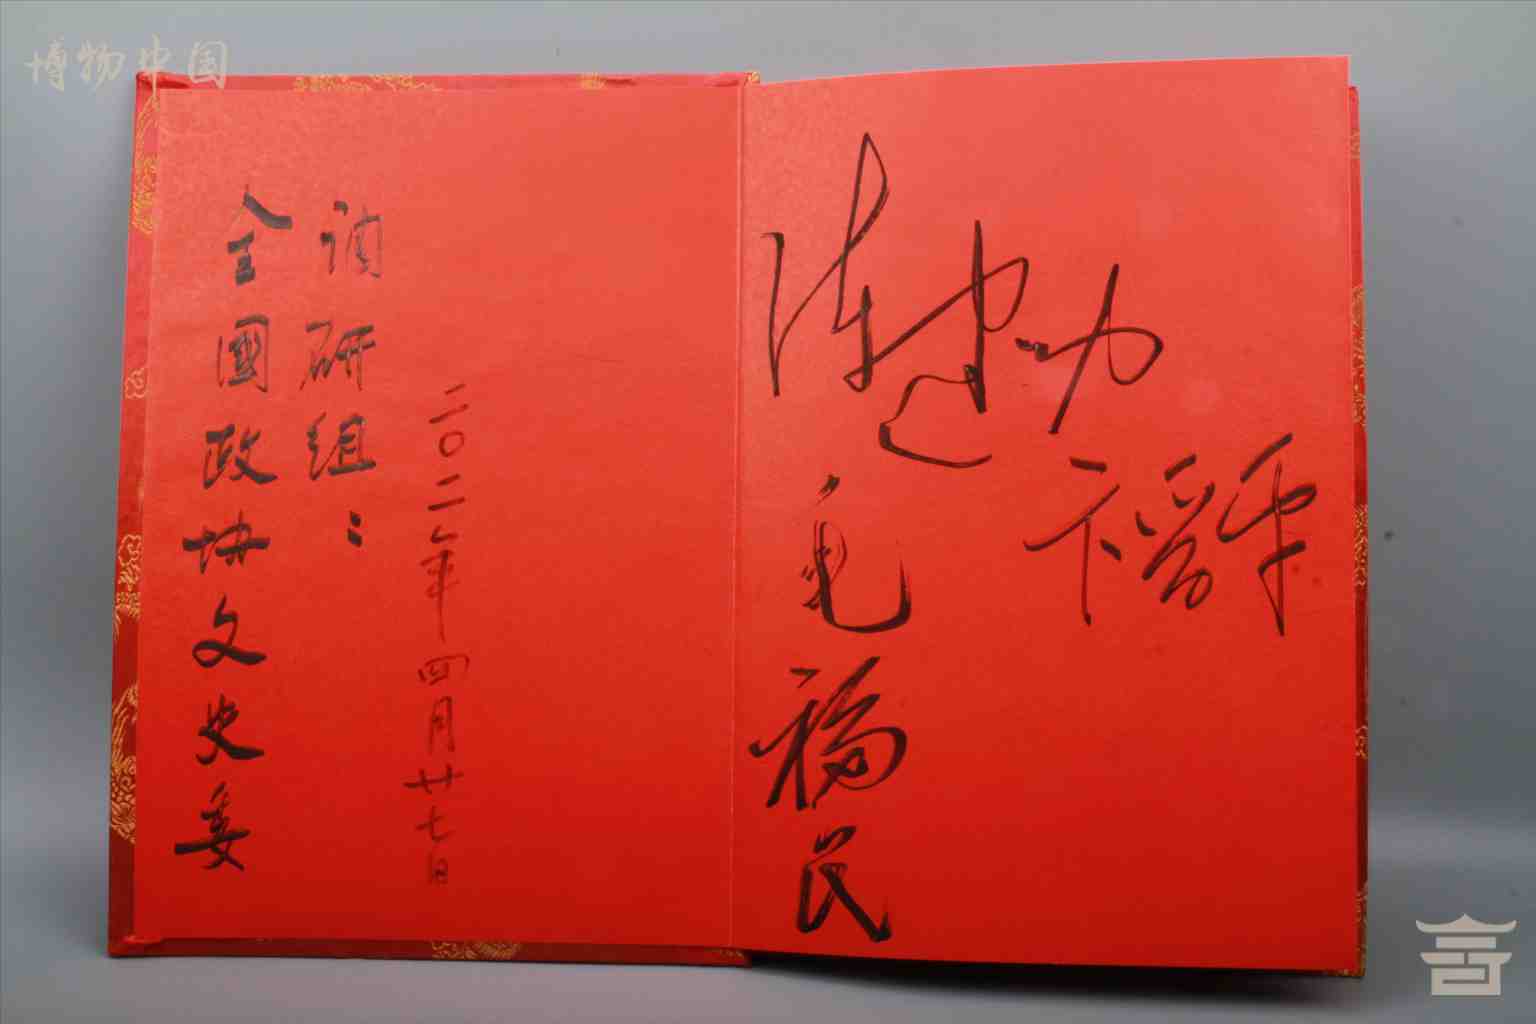 博物中国
全國政协文史委
调研组：
二〇一二年四月廿七日
陈建功
卞晋平
毛福民